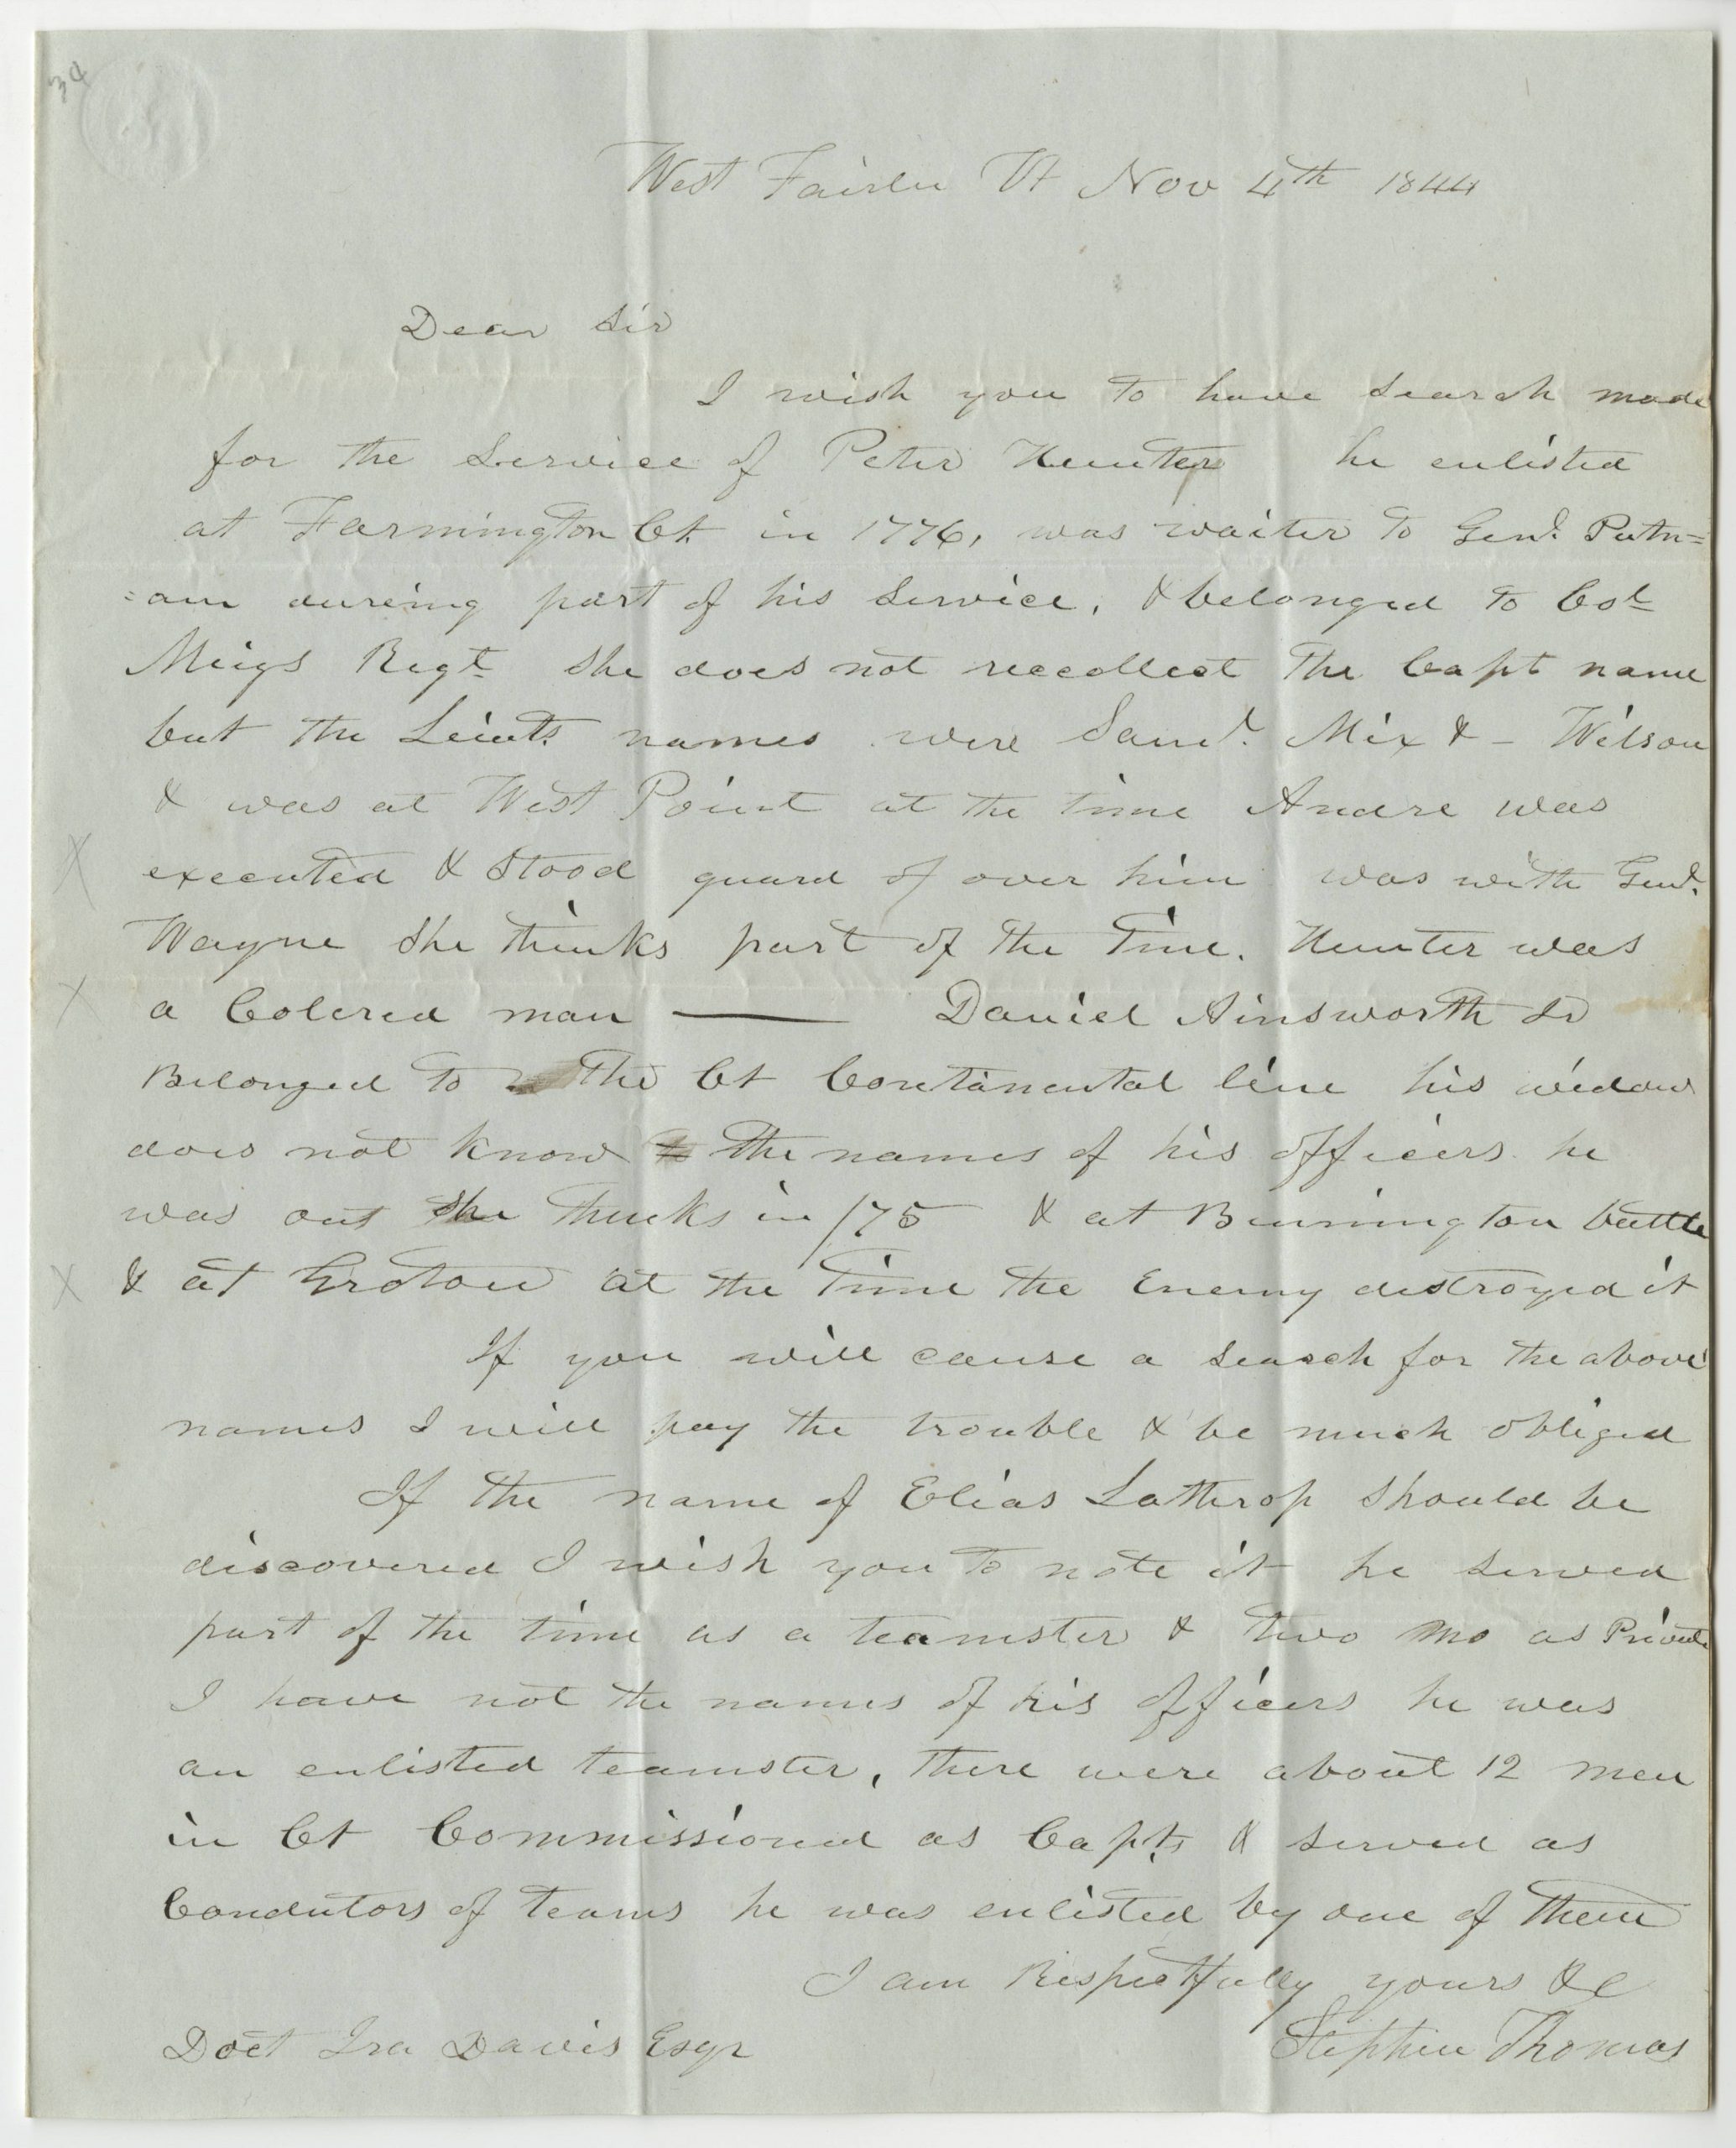 34
West Fairlee Vt Nov 4th 1844
Dear Sir
I wish you to have search made
for the Service of Peter Hunter he enlisted
at Farmington Ct. in 1776, was waiter to Genl. Putn=
=am dureing part of his Service, & belonged to Col
Meigs Regt She does not recollect The Capt name
but the Leiuts names were Saml. Mix & - Wilson
& was at West Point at the time Andre was
executed & Stood guard of over him was with Genl.
Wayne She thinks part of the Time. Hunter was
a Colered man — Daniel Ainsworth Sr
Belonged to The Ct Contanental line his widow
does not know the names of his officers he
was out she thinks in /75 & at Bennington battle
& at Groton at the Time the Enemy destroyed it
If you will cause a search for the above
names I will pay the trouble & be much obliged
If the name of Elias Lathrop should be
discovered I wish you to note it he served
part of the time as a teamster & two mo as Private
I have not the names of his officers he was
an enlisted teamster, there were about 12 men
in Ct Commissioned as Capts & served as
Condutors of teams he was enlisted by one of them
I am Respectfully yours &c
Stephen Thomas
Doct Ira Davis Esqr